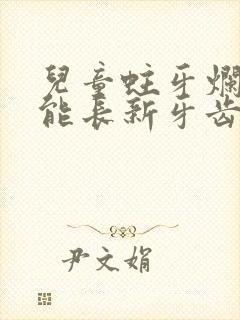 兒童蛀牙爛
能長新牙齒
尹文娟